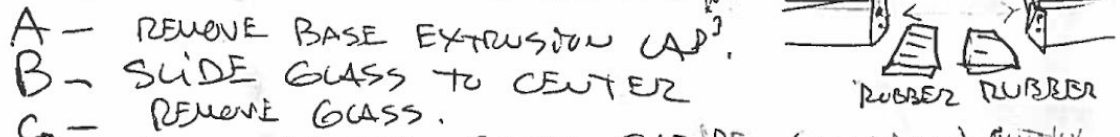 A - REMOVE BASE EXTRUSION CAP?.
B - SLIDE GLASS TO CENTER
REMOVE GLASS.
C -
RUBBER RUBBER